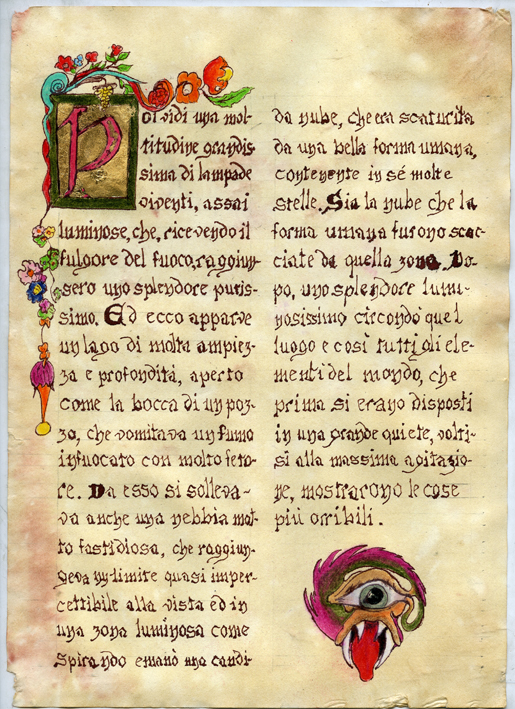 Poi vidi una mol-
titudine grandis-
sima di lampade
viventi, assai
luminose, che, ricevendo il
fulgore del fuoco, raggiun-
sero uno splendore puris-
simo. Ed ecco apparve
un lago di molta ampiez-
za e profondità, aperto
come la bocca di un poz-
zo, che vomitava un fumo
infuocato con molto feto-
re. Da esso si solleva-
va anche una nebbia mol-
to fastidiosa, che raggiun-
geva un limite quasi imper-
cettibile alla vista ed in
una zona luminosa come
spirando emanò una candi-
da nube, che era scaturita
da una bella forma umana,
contenente in sé molte
stelle. Sia la nube che la
forma umana furono scac-
ciate da quella zona. Do-
po, uno splendore lumi-
nosissimo circondò quel
luogo e così tutti gli ele-
menti del mondo, che
prima si erano disposti
in una grande quiete, volti-
si alla massima agitazio-
ne, mostrarono le cose
più orribili.